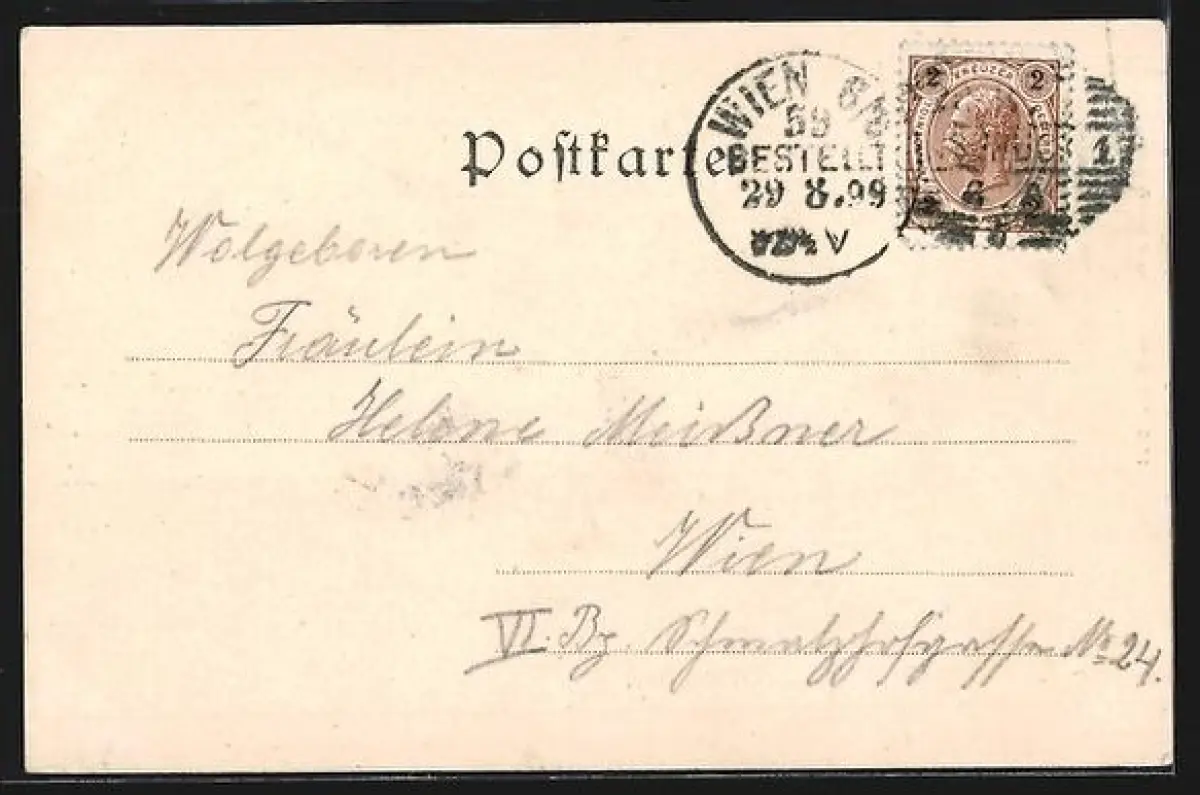 Postkarte
WIEN 6/
59
BESTELLT
29 8.99
V
2 KREUZER 2
1
Wolgeboren
Fräulein
Helene Meißner
Wien
VI. Bz. Schmalzhofgasse No 24.